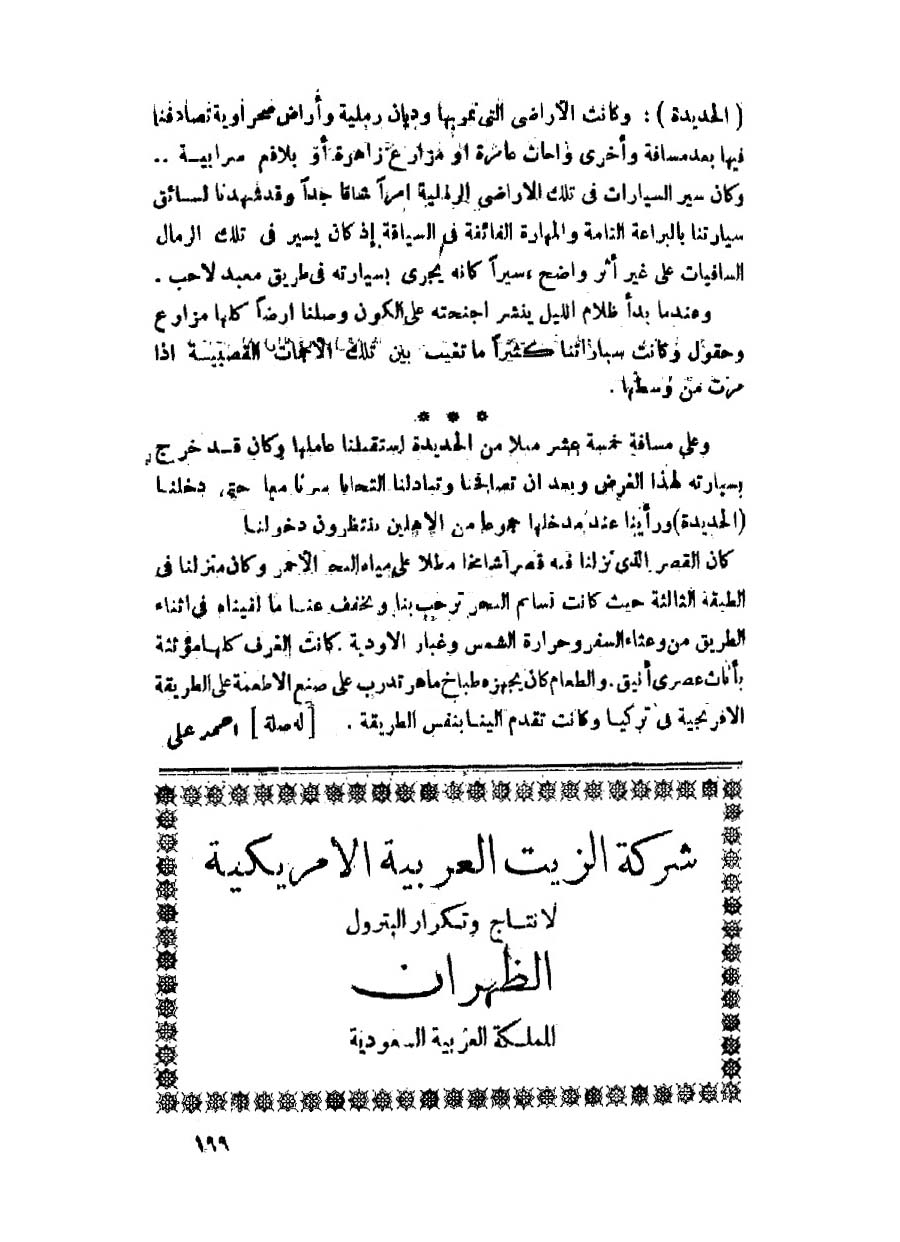 ( الحديدة ) : وكانت الأراضى التى نمر بها وديان رملية وأراض صحراوية تصادفنا
فيها بعد مسافة وأخرى واحات عامرة او مزارع زاهرة أو بلاقع سرابية ..
وكان سير السيارات فى تلك الاراضي الرملية امراً شاقا جداً وقد شهدنا لسائق
سيارتنا بالبراعة التامة والمهارة الفائقة في السياقة إذ كان يسير فى تلك الرمال
السافيات على غير أثر واضح ، سيراً كانه يجرى بسيارته فى طريق معبد لاحب .
وعندما بدأ ظلام الليل ينشر اجنحته على الكون وصلنا ارضاً كلها مزارع
وحقول وكانت سياراتنا كثيراً ما تغيب بين تلك الاجمات القصبيسة اذا
مرت من وسطها .
* * *
وعلى مسافة خمسة عشر ميلا من الحديدة استقبلنا عاملها وكان قد خرج
بسيارته لهذا الغرض وبعد ان تصافحنا وتبادلنا التحايا سرنا معا حتى دخلنا
(الحديدة) ورأينا عند مدخلها جموعا من الاهلين ينتظرون دخولنا
كان القصر الذى نزلنا فيه قصراً شامخا مطلا على مياه البحر الأحمر وكان منزلنا فى
الطبقة الثالثة حيث كانت نسائم البحر ترحب بنا وتخفف عنا ما لقيناه فى اثناء
الطريق من وعثاء السفر وحرارة الشمس وغبار الاودية . كانت الغرف كلها مؤثثة
بأثاث عصرى أنيق . والطعام كان يجهزه طباخ ماهر تدرب على صنع الاطعمة على الطريقة
الافرنجية فى تركيا وكانت تقدم الينا بنفس الطريقة . [ له صلة ] احمد على
شركة الزيت العربية الامريكية
لانتاج وتكرار البترول
الظهران
المملكة العربية السعودية
١٩٩